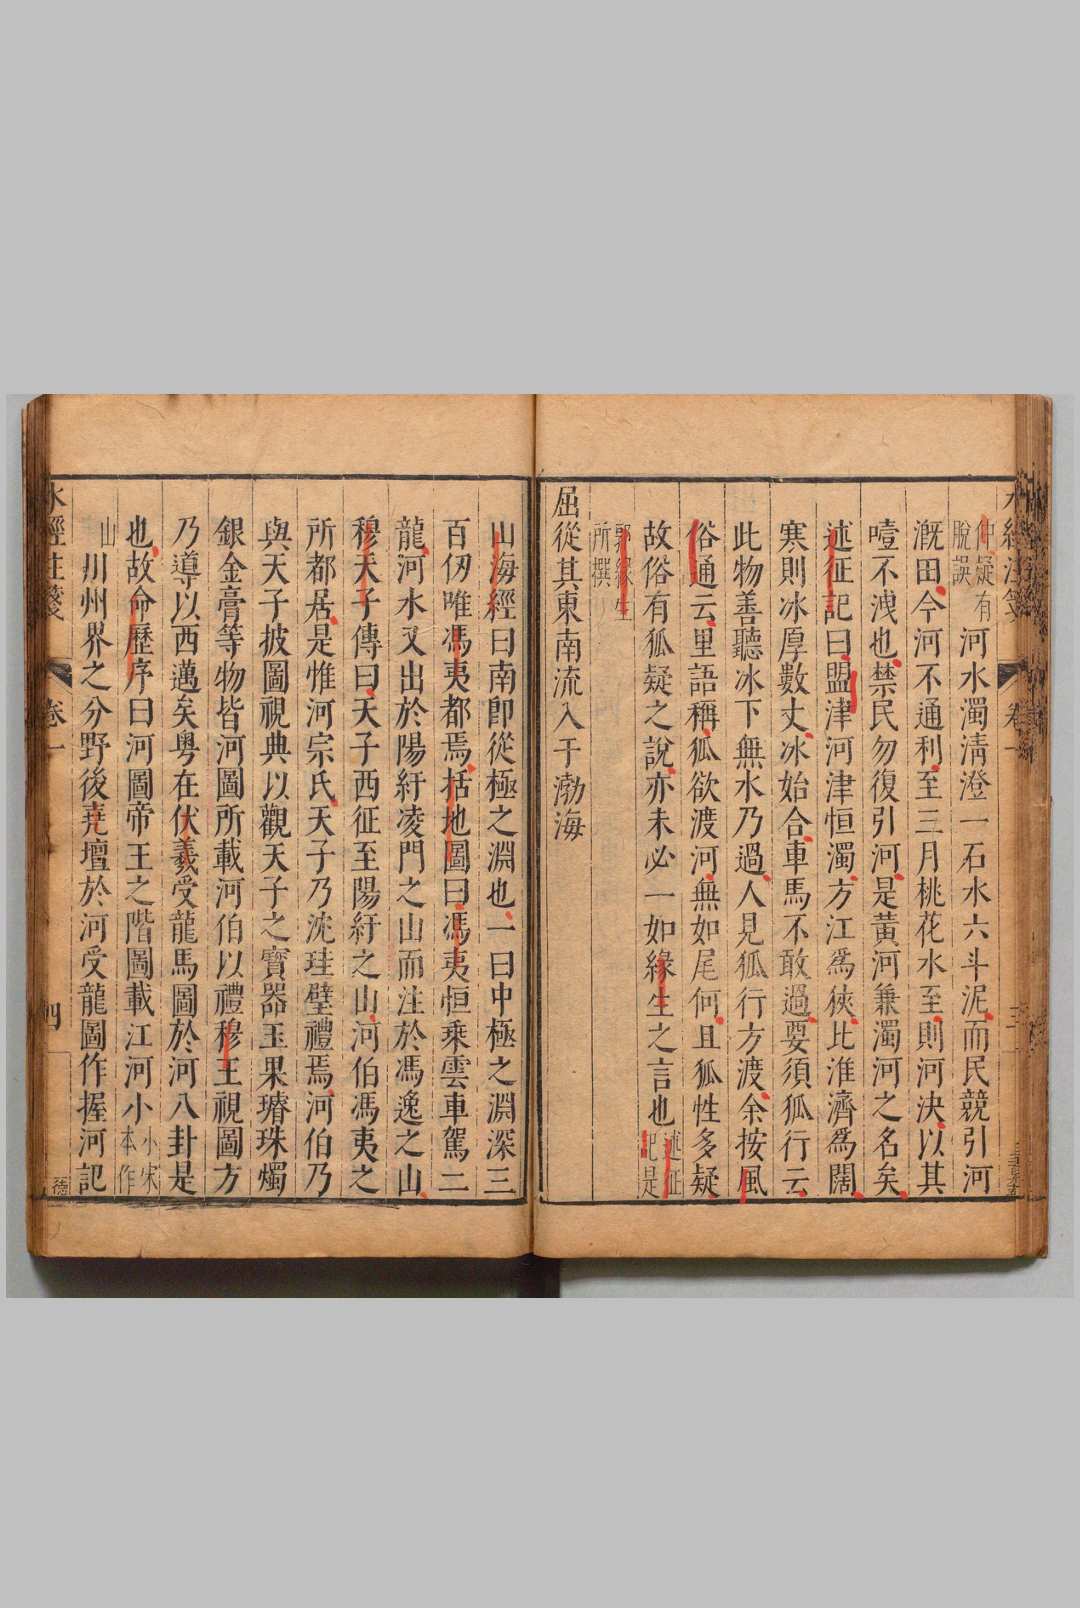 仲疑有脫誤河水濁清澄一石水六斗泥而民競引河
溉田今河不通利至三月桃花水至則河決以其
噎不洩也禁民勿復引河是黃河兼濁河之名矣
述征記曰盟津河津恒濁方江爲狹比淮濟爲闊
寒則冰厚數丈冰始合車馬不敢過要須狐行云
此物善聽冰下無水乃過人見狐行方渡余按風
俗通云里語稱狐欲渡河無如尾何且狐性多疑
故俗有狐疑之說亦未必一如緣生之言也述征記是
郭緣生所撰
屈從其東南流入于渤海
山海經曰南卽從極之淵也一曰中極之淵深三
百仞唯馮夷都焉括地圖曰馮夷恒乘雲車駕二
龍河水又出於陽紆凌門之山而注於馮逸之山
穆天子傳曰天子西征至陽紆之山河伯馮夷之
所都居是惟河宗氏天子乃沈珪璧禮焉河伯乃
與天子披圖視典以觀天子之寶器玉果璿珠燭
銀金膏等物皆河圖所載河伯以禮穆王視圖方
乃導以西邁矣粤在伏羲受龍馬圖於河八卦是
也故命歷序曰河圖帝王之階圖載江河小小宋本作
山川州界之分野後堯壇於河受龍圖作握河記
水經注箋
卷一
四
德